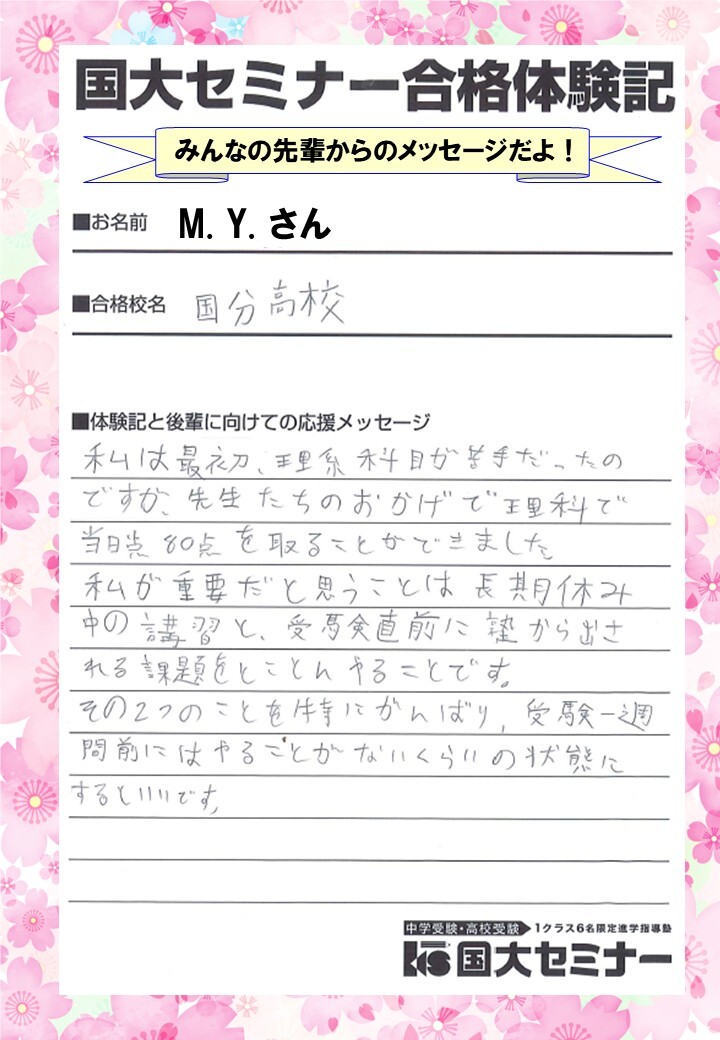 国大セミナー合格体験記
みんなの先輩からのメッセージだよ！
■お名前 M. Y. さん
■合格校名 国分高校
■体験記と後輩に向けての応援メッセージ
私は最初、理系科目が苦手だったの
ですが、先生たちのおかげで理科で
当日点80点を取ることができました。
私が重要だと思うことは長期休み
中の講習と、受験直前に塾から出さ
れる課題をとことんやることです。
その2つのことを特にがんばり、受験一週
間前にはやることがないくらいの状態に
するといいです。
中学受験・高校受験 1クラス6名限定進学指導塾
KS 国大セミナー